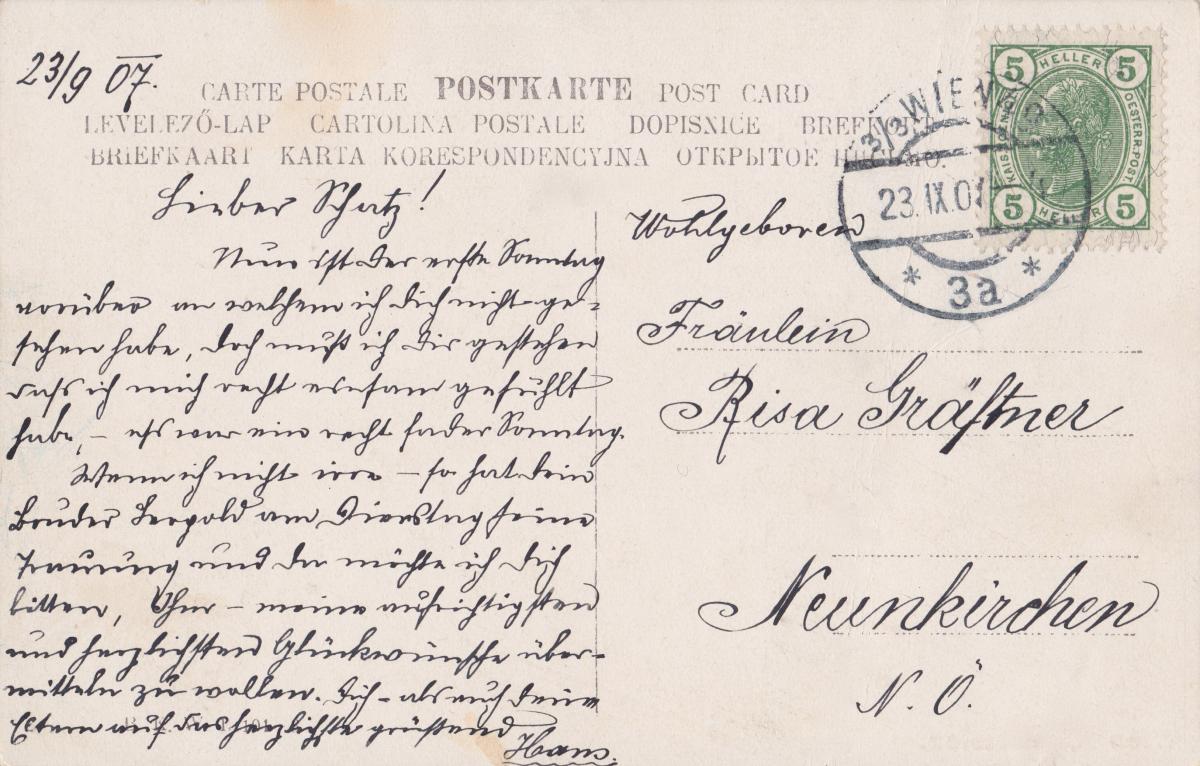 23/9 07.
CARTE POSTALE POSTKARTE POST CARD
LEVELEZŐ-LAP CARTOLINA POSTALE DOPISNICE
BRIEFKAART KARTA KORESPONDENCYJNA ОТКРЫТОЕ
5 HELLER 5
KAIS. OESTERR. POST
5 HELLER 5
3/3 WIEN
23. IX. 07
* 3a *
Lieber Schatz!
Nun ist der erste Sonntag
vorüber an welchem ich dich nicht ge-
sehen habe, doch muß ich dir gestehen
dass ich mich recht einsam gefühlt
habe, – es war ein recht fader Sonntag.
Wenn ich nicht irre – so hat dein
Bruder Leopold am Dienstag seine
Trauung und da möchte ich dich
bitten, Ihm – meine aufrichtigsten
und herzlichsten Glückwünsche über-
mitteln zu wollen. Dich – als auch deine
Eltern auf das herzlichste grüßend
Hans.
Wohlgeboren
Fräulein
Risa Gräftner
Neunkirchen
N. Ö.